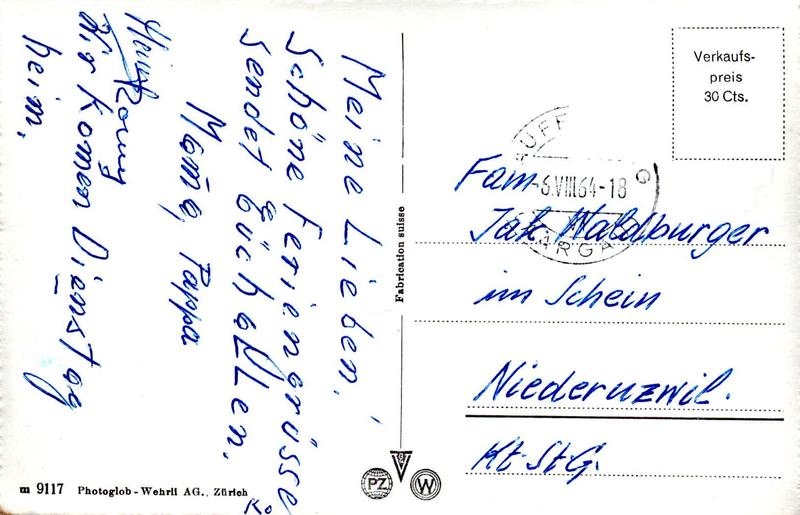 Meine Lieben!
Schöne Feriengrüsse
sendet Euch allen.
Mama, Pappa
Heinz Romy
Wir komen Dienstag
heim.
Fabrication suisse
m 9117 Photoglob-Wehrli AG., Zürich
PZ
W
Verkaufs-
preis
30 Cts.
-6.VIII.64-18
AARGAU
Fam.
Jak. Waldburger
im Schein
Niederuzwil.
Kt. St. G.